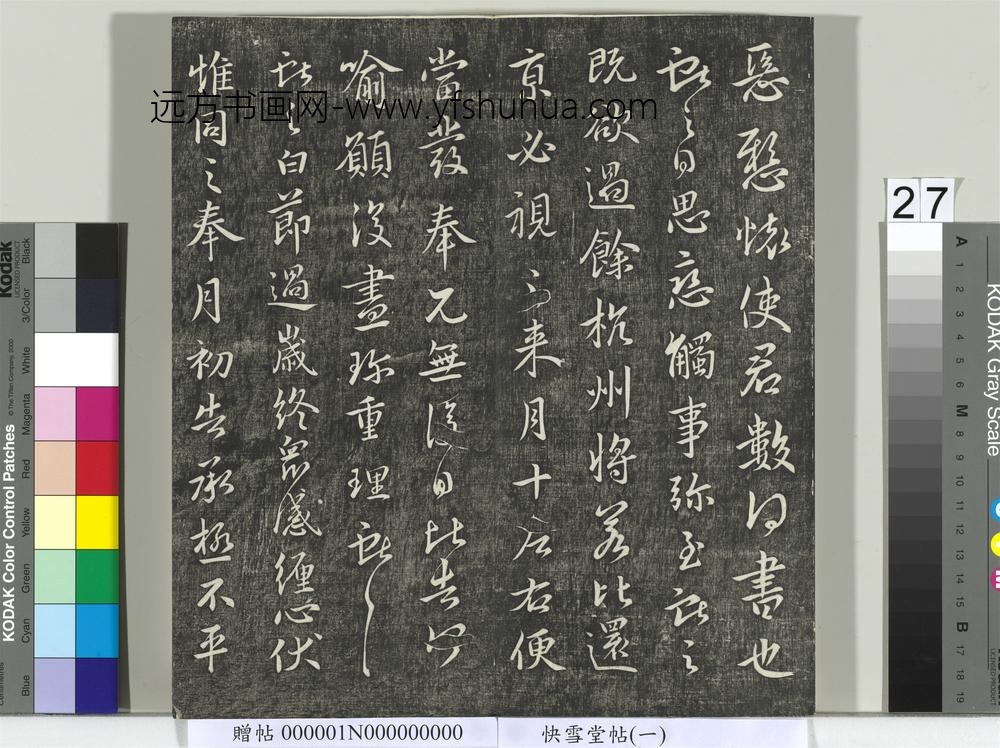 懷使君數得書也
獻之白思戀觸事彌至獻之
既欲過餘杭州將若比還
京必視之來月十左右便
當發奉見無復日比告何
喻願復盡珍重理獻之
獻之白節過歲終眾感纏心伏
惟同之奉月初告承極不平
远方书画网-www.yfshuhua.com
27
贈帖 000001N000000000
快雪堂帖(一)
Kodak
LICENSED PRODUCT
KODAK Color Control Patches
© The Tiffen Company, 2000
Black
3/Color
White
Magenta
Red
Yellow
Green
Cyan
Blue
Centimetres
KODAK Gray Scale
A 1 2 3 4 5 6 M 8 9 10 11 12 13 14 15 B 17 18 19